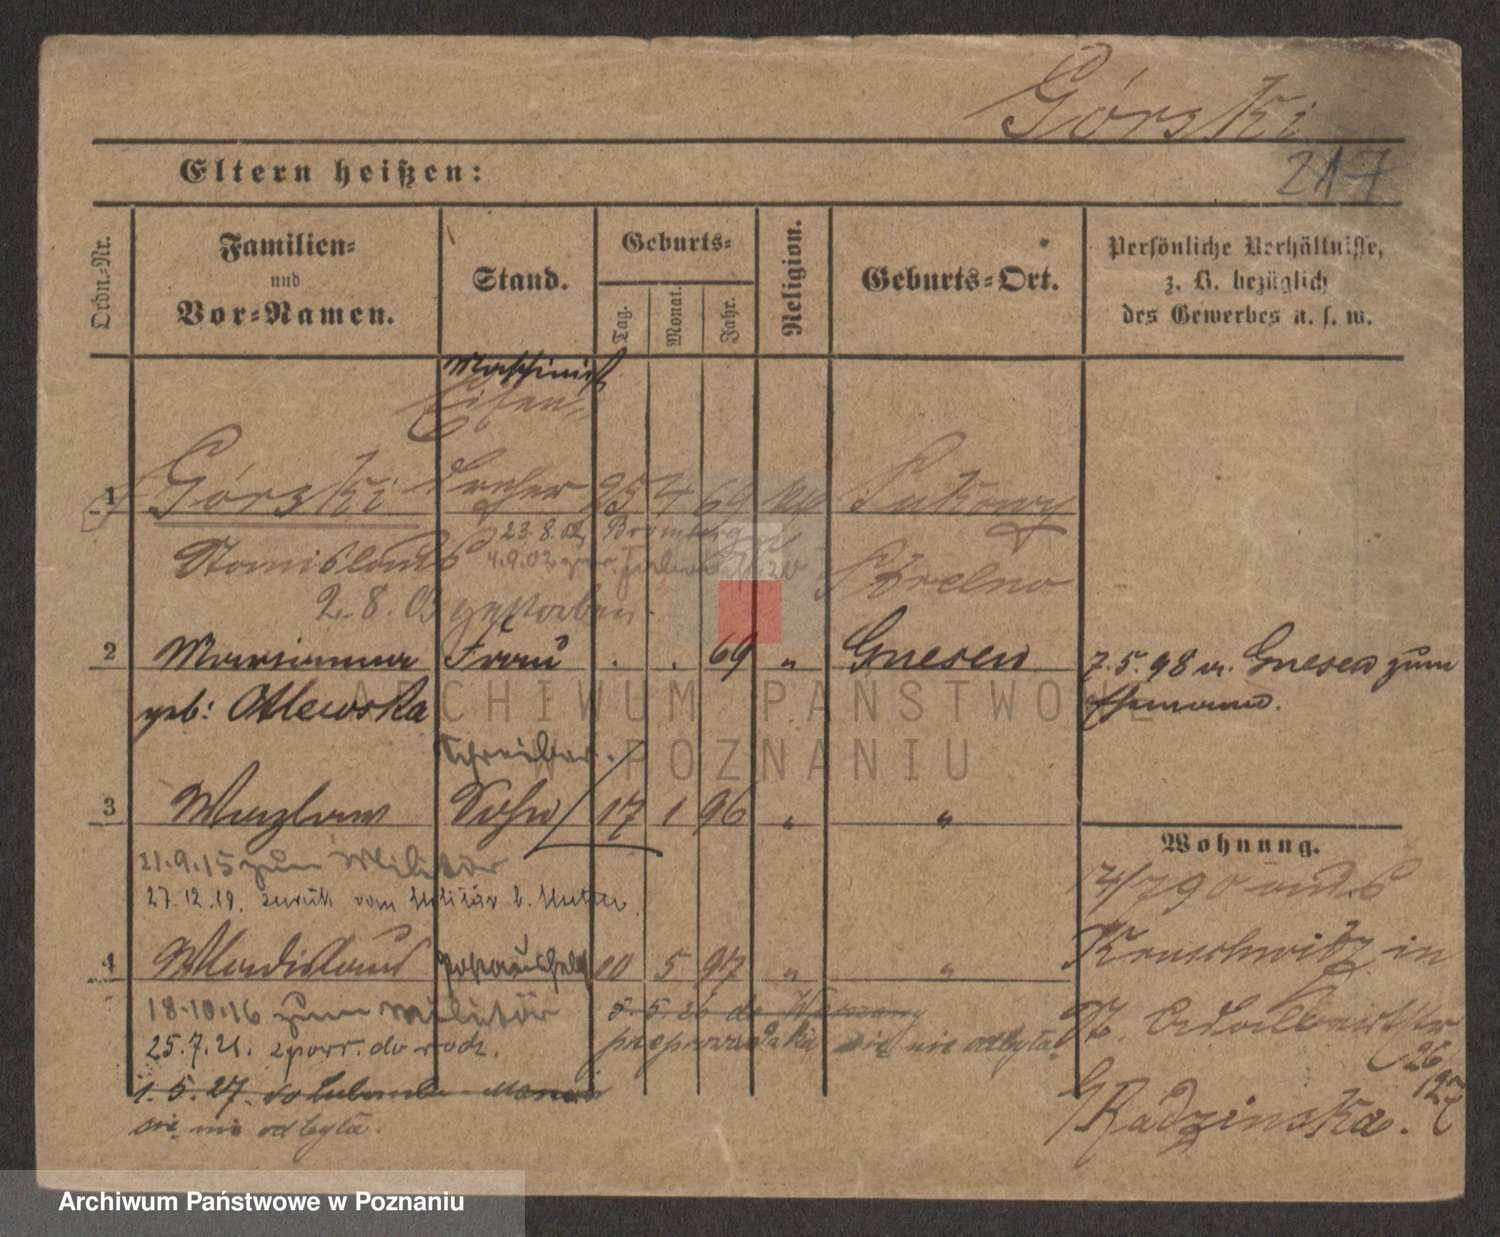 Górski
217
Eltern heißen:
Ordn.-Nr.
Familien- und Vor-Namen.
Stand.
Geburts-
Tag.
Monat.
Jahr.
Religion.
Geburts-Ort.
Persönliche Verhältnisse, z. B. bezüglich des Gewerbes u. s. w.
Maschinist
Eisen-
1 Górski dreher 25 4 69 Sukowy
23.8.02 Bromberg
Stanislaus 4.9.02 zur. Strelno
2.8.03 gestorben
2 Marianna Frau . . 69 " Gnesen
7.5.98 v. Gnesen zum
geb: Ehemann.
Schreiber.
3 Wazlaw Sohn 17 1 96 " "
Wohnung.
21.9.15 zum Militär
14/7 90 aus
27.12.19. zurück vom Militär b. Mutter.
4 Wladislaus Postaushelf 10 5 97 " "
in
18.10.16 zum Militär
5.5.26 do Warszawy
St. Adalbertstr
25.7.21. z powr. do rodz.
przeprowadzka się nie odbyła.
26/
12
1.5.27. do Lubonia
Radzinska.
się nie odbyła.
ARCHIWUM PAŃSTWOWE
W POZNANIU
Archiwum Państwowe w Poznaniu